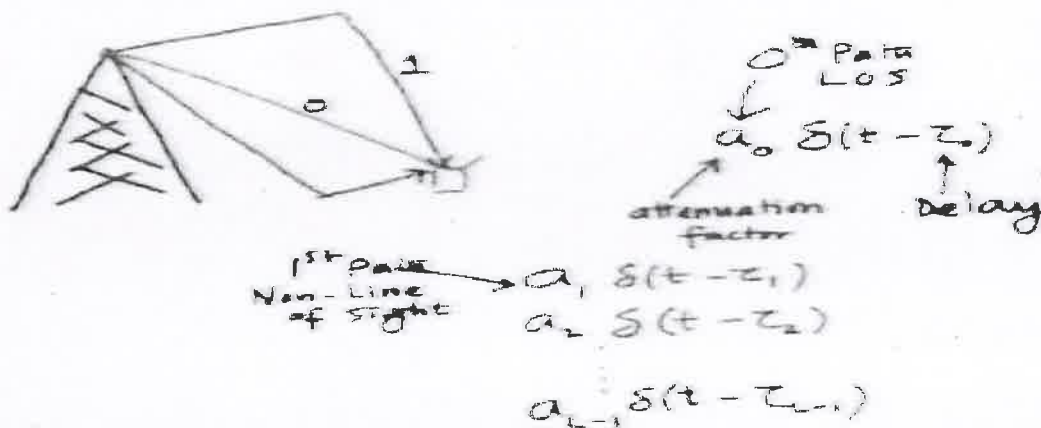 1
0
0th Path
LOS
a₀ δ(t - τ₀)
attenuation
factor
Delay
1st Path
Non-Line
of Sight
a₁ δ(t - τ₁)
a₂ δ(t - τ₂)
⋮
a_{L-1} δ(t - τ_{L-1})